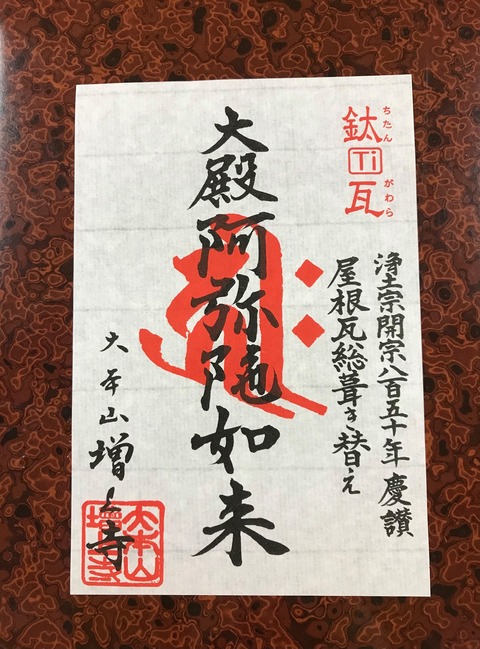 鈦瓦
ちたん
Ti
がわら
浄土宗開宗八百五十年 慶讃
屋根瓦総葺き替え
大殿阿弥陀如来
大本山増上寺
大本山
増上寺